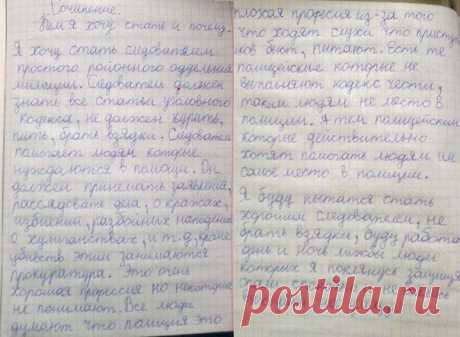 Сочинение.
Кем я хочу стать и почему.
Я хочу стать следователем
простого районного отделения
милиции. Следователь должен
знать все статьи уголовного
кодекса, не должен курить,
пить, брать взятки. Следователь
помогает людям которые
нуждаются в помощи. Он
должен принемать заявления,
расследовать дела, о кражах,
избиении, разбойных нападения
о хулиганствах, и т.д, кроме
убийств этим занимаются
прокуратура. Это очень
хорошая профессия но некоторые
не понимают. Все люди
думают что полиция это
плохая професия из-за того
что ходят слухи что приступ
ков бьют, питают. Есть те
полицейские которые не
выполняют кодекс чести,
таким людям не место в
полиции. А тем полицейским
которые действительно
хотят помогать людям им
самое место в полиции.
Я буду пытатся стать
хорошим следователем, не
брать взятки, буду работа
день и ночь лижбы люди
которых я поклянусь защища
постила.ru